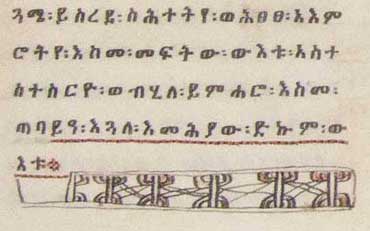 ጓሜ፡ይስረይ፡ስሕተትየ፡ወሕፀፀ፡አእም
ሮትየ፡እስመ፡መፍትው፡ውእቱ፡አስተ
ስተስርዮ፡ወብሂለ፡ይምሐሮ፡እስመ፡
ጠባይዓ፡እጓለ፡እመሕያው፡ድኩም፡ው
እቱ።